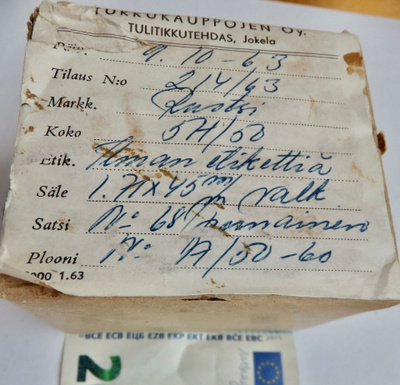 TUKKUKAUPPOJEN OY.
TULITIKKUTEHDAS, Jokela
9. 10-63
Tilaus N:o 214/63
Markk. Ruotsi
Koko 5H/50
Etik. Ilman etikettiä
Säle 1.7H x 45 m/m valk.
Satsi N:o 68 punainen
Plooni N:o A/50-60
1.63
BCE ECB ЕЦБ EZB EKP EKT EKB BĊE EBC
2